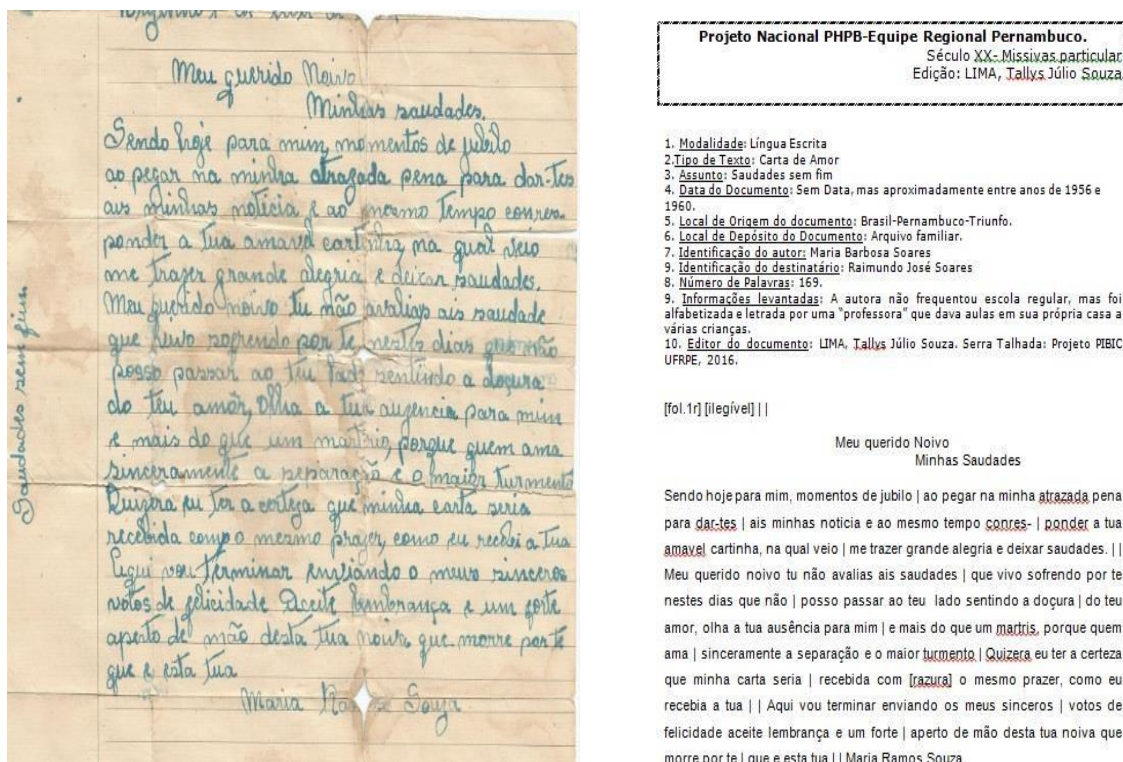 Meu querido Noivo
Minhas saudades.
Sendo hoje para mim, momentos de jubilo
ao pegar na minha atrazada pena para dar-tes
ais minhas noticia e ao mesmo tempo conres-
ponder a tua amavel cartinha, na qual veio
me trazer grande alegria e deixar saudades.
Meu querido noivo tu não avalias ais saudade
que vivo sofrendo por te nestes dias que não
posso passar ao teu lado sentindo a doçura
do teu amor, olha a tua auzencia para mim
e mais do que um martrio, porque quem ama
sinceramente a separação e o maior turmento
Quizera eu ter a certeza que minha carta seria
recebida com o mesmo prazer, como eu recebi a tua
Aqui vou terminar enviando o meus sinceros
votos de felicidade Aceite lembrança e um forte
aperto de mão desta tua noiva que morre por te
que e esta tua
Maria Souza
Saudades sem fim
Projeto Nacional PHPB-Equipe Regional Pernambuco.
Século XX- Missivas particular
Edição: LIMA, Tallys Júlio Souza
1. Modalidade: Língua Escrita
2.Tipo de Texto: Carta de Amor
3. Assunto: Saudades sem fim
4. Data do Documento: Sem Data, mas aproximadamente entre anos de 1956 e
1960.
5. Local de Origem do documento: Brasil-Pernambuco-Triunfo.
6. Local de Depósito do Documento: Arquivo familiar.
7. Identificação do autor: Maria Barbosa Soares
9. Identificação do destinatário: Raimundo José Soares
8. Número de Palavras: 169.
9. Informações levantadas: A autora não frequentou escola regular, mas foi
alfabetizada e letrada por uma "professora" que dava aulas em sua própria casa a
várias crianças.
10. Editor do documento: LIMA, Tallys Júlio Souza. Serra Talhada: Projeto PIBIC
UFRPE, 2016.
[fol.1r] [ilegível] | |
Meu querido Noivo
Minhas Saudades
Sendo hoje para mim, momentos de jubilo | ao pegar na minha atrazada pena
para dar-tes | ais minhas noticia e ao mesmo tempo conres- | ponder a tua
amavel cartinha, na qual veio | me trazer grande alegria e deixar saudades. | |
Meu querido noivo tu não avalias ais saudades | que vivo sofrendo por te
nestes dias que não | posso passar ao teu lado sentindo a doçura | do teu
amor, olha a tua ausência para mim | e mais do que um martris, porque quem
ama | sinceramente a separação e o maior turmento | Quizera eu ter a certeza
que minha carta seria | recebida com [razura] o mesmo prazer, como eu
recebia a tua | | Aqui vou terminar enviando os meus sinceros | votos de
felicidade aceite lembrança e um forte | aperto de mão desta tua noiva que
morre por te | que e esta tua | | Maria Ramos Souza